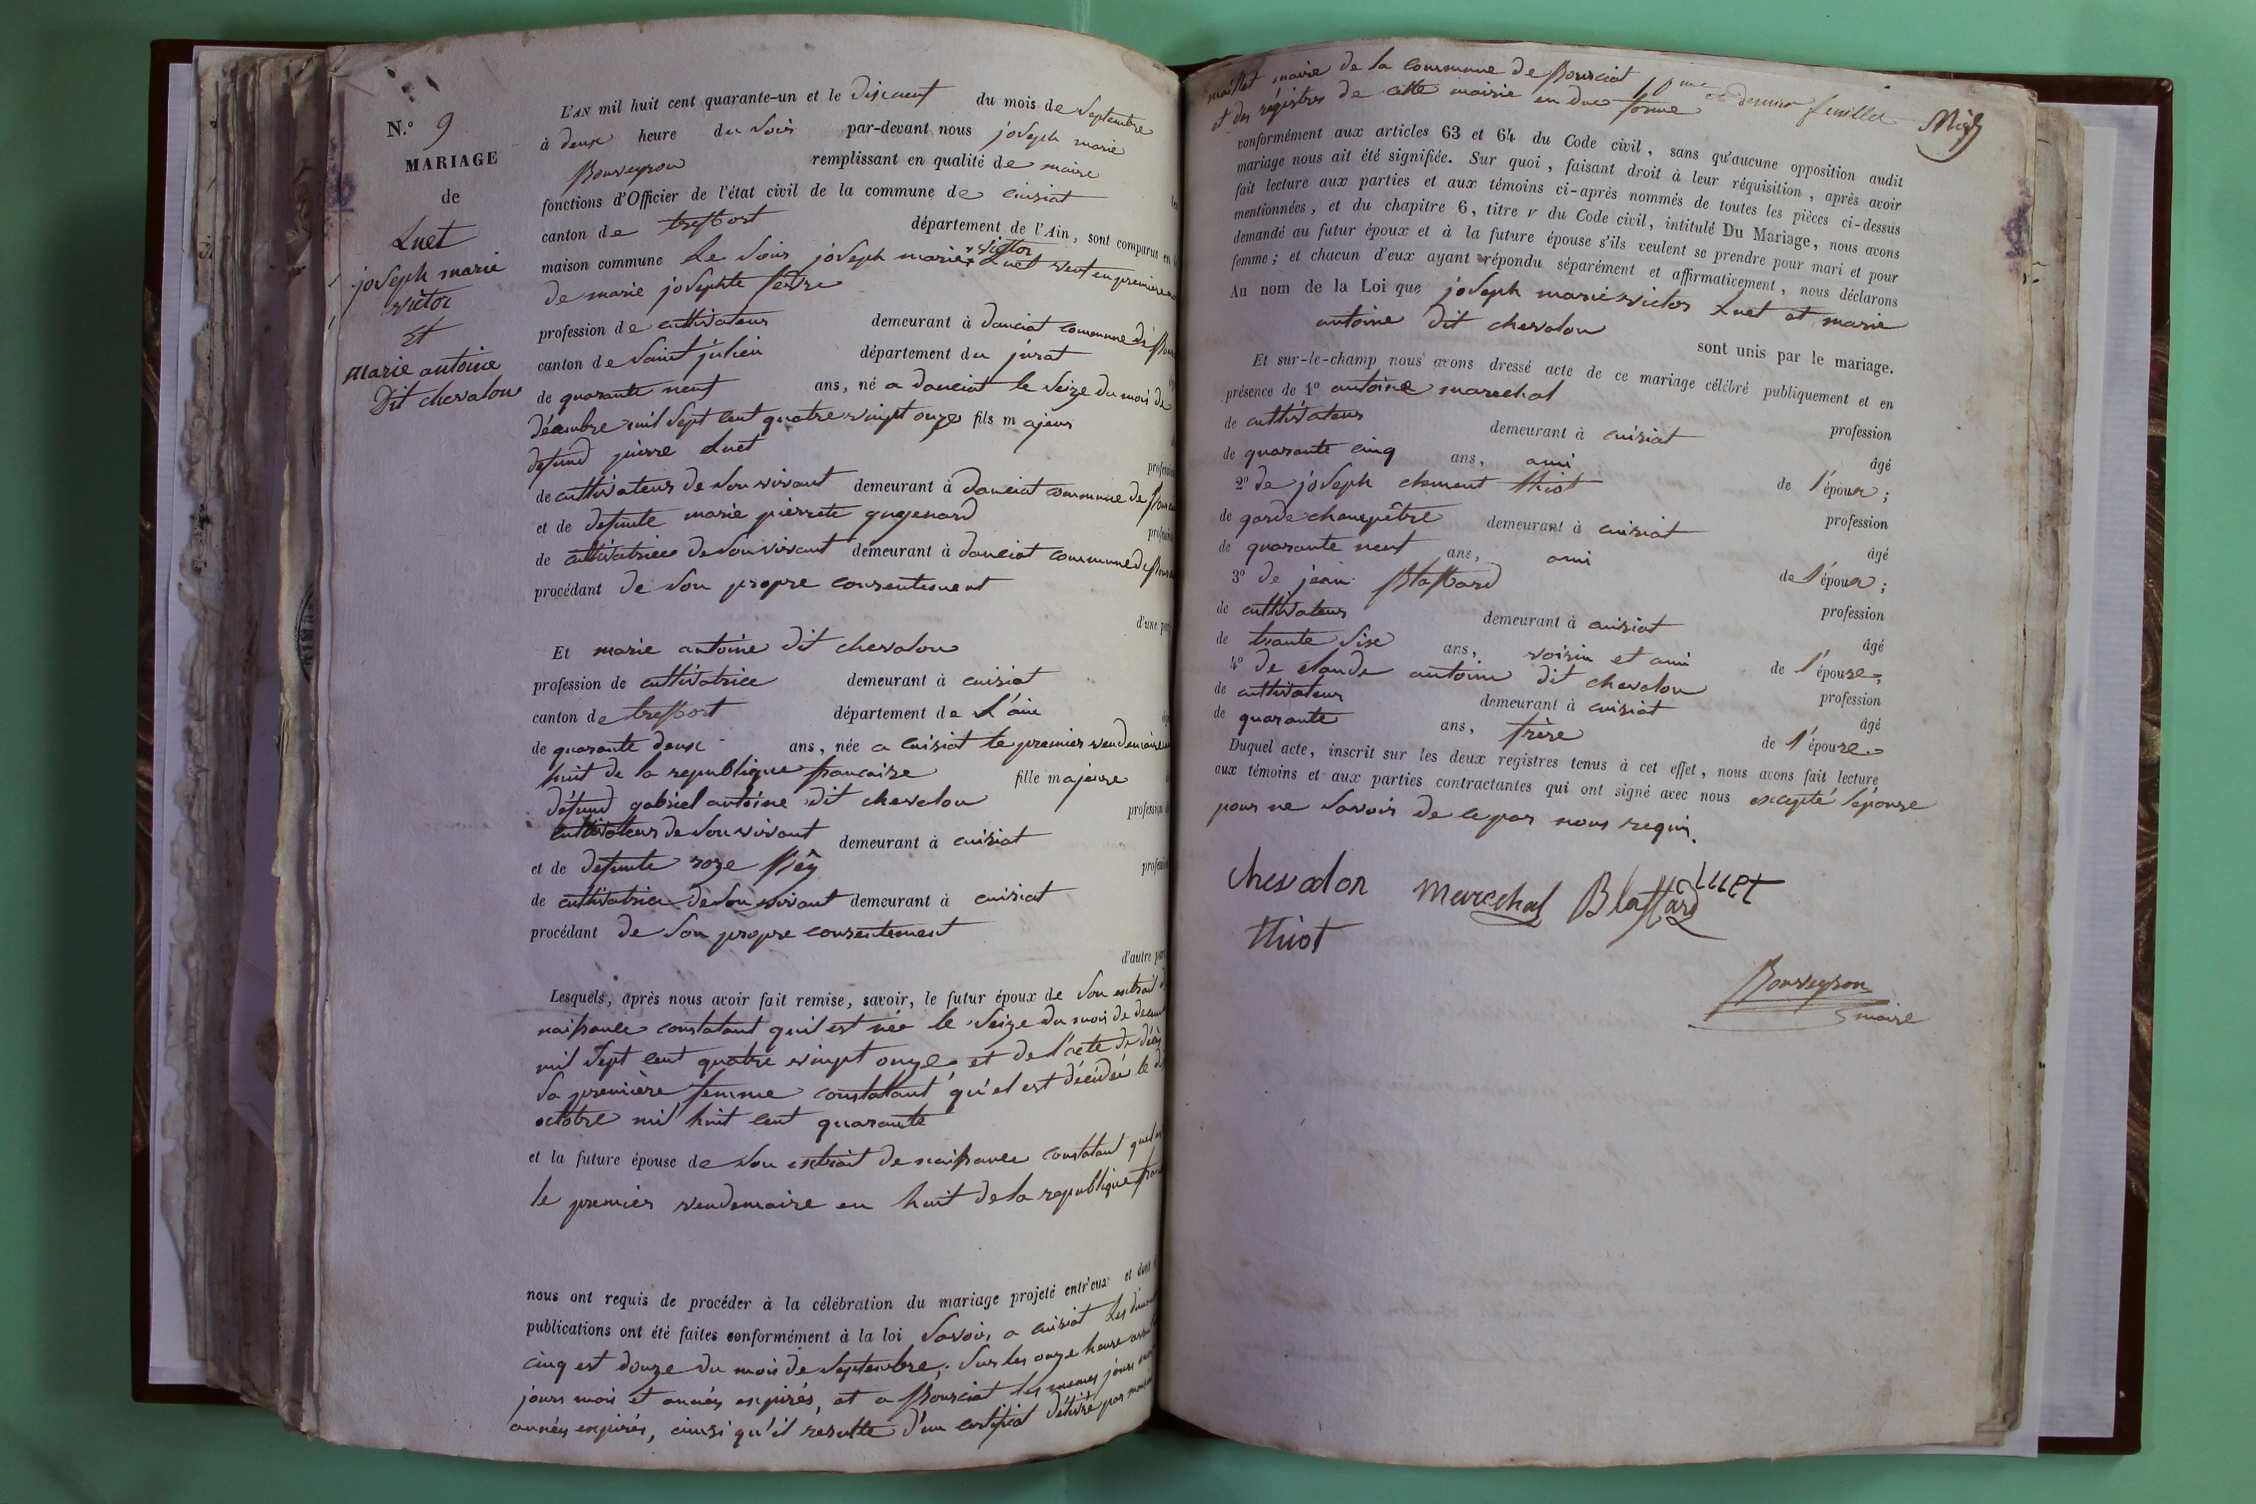 N.º 9
MARIAGE
de
Luet
joseph marie
victor
et
marie antoine
Dit chevalon
L'AN mil huit cent quarante-un et le dixneuf du mois de septembre
à deux heure du soir par-devant nous joseph marie
Bouveyron remplissant en qualité de maire
fonctions d'Officier de l'état civil de la commune de cuisiat
canton de treffort département de l'Ain, sont comparus en
maison commune Le sieur joseph marie victor Luet veuf en première
de marie josephte
profession de cultivateur demeurant à dancia commune de
canton de Saint julien département du jurat
de quarante neuf ans, né a danciat le seize du mois de
décembre mil sept cent quatre vingt onze fils majeur
defund pierre Luet
de cultivateur de son vivant demeurant à danciat commune de
et de defunte marie pierrete guyenard
de cultivatrice de son vivant demeurant à danciat commune de
procédant de son propre consentement
d'une part
Et marie antoine dit chevalon
profession de cultivatrice demeurant à cuisiat
canton de treffort département de L'ain
de quarante deux ans, née a cuisiat le premier vendemaire
huit de la republique francaise fille majeure
défund gabriel antoine dit chevalon
cultivateur de son vivant demeurant à cuisiat
et de defunte roze
de cultivatrice de son vivant demeurant à cuisiat
procédant de son propre consentement
d'autre part
Lesquels, après nous avoir fait remise, savoir, le futur époux de son extrait d
naissance constatant qu'il est née le seize du mois de
mil sept cent quatre vingt onze, et de l'acte de décès
sa première femme constatant qu'el est décédée le
octobre mil huit cent quarante
et la future épouse de son extrait de naissance constatant
le premier vendemaire en huit de la republique
nous ont requis de procéder à la célébration du mariage projeté entr'eux et dont
publications ont été faites conformément à la loi savoir, a cuisiat Les
cinq est douze du mois de septembre, sur les onze heure
jours mois et années expirés, et a Bourciat les memes jours
années expirés, ainsi qu'il resulte d'un certificat délivré par
maillet maire de la commune de Bourciat 10me et dernier feuillet
et des régistres de cette mairie en due forme
conformément aux articles 63 et 64 du Code civil, sans qu'aucune opposition audit
mariage nous ait été signifiée. Sur quoi, faisant droit à leur réquisition, après avoir
fait lecture aux parties et aux témoins ci-après nommés de toutes les pièces ci-dessus
mentionnées, et du chapitre 6, titre v du Code civil, intitulé Du Mariage, nous avons
demandé au futur époux et à la future épouse s'ils veulent se prendre pour mari et pour
femme; et chacun d'eux ayant répondu séparément et affirmativement, nous déclarons
Au nom de la Loi que joseph marie victor Luet et marie
antoine dit chevalon sont unis par le mariage.
Et sur-le-champ nous avons dressé acte de ce mariage célébré publiquement et en
présence de 1º antoine marechal profession
de cultivateur demeurant à cuisiat âgé
de quarante cinq ans, ami de l'époux;
2º de joseph clement thiot profession
de garde champêtre demeurant à cuisiat âgé
de quarante neuf ans, ami de l'époux;
3º de jean Blattard profession
de cultivateur demeurant à cuisiat âgé
de trante six ans, voisin et ami de l'épouse;
4º de claude antoine dit chevalon profession
de cultivateur demeurant à cuisiat âgé
de quarante ans, frère de l'épouse
Duquel acte, inscrit sur les deux registres tenus à cet effet, nous avons fait lecture
aux témoins et aux parties contractantes qui ont signé avec nous excepté l'épouse
pour ne savoir de ce par nous requis.
chevalon marechal Blattard Luet
thiot
Bouveyron
maire